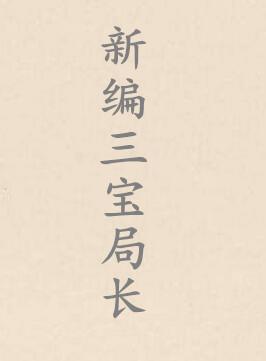 新编三宝局长